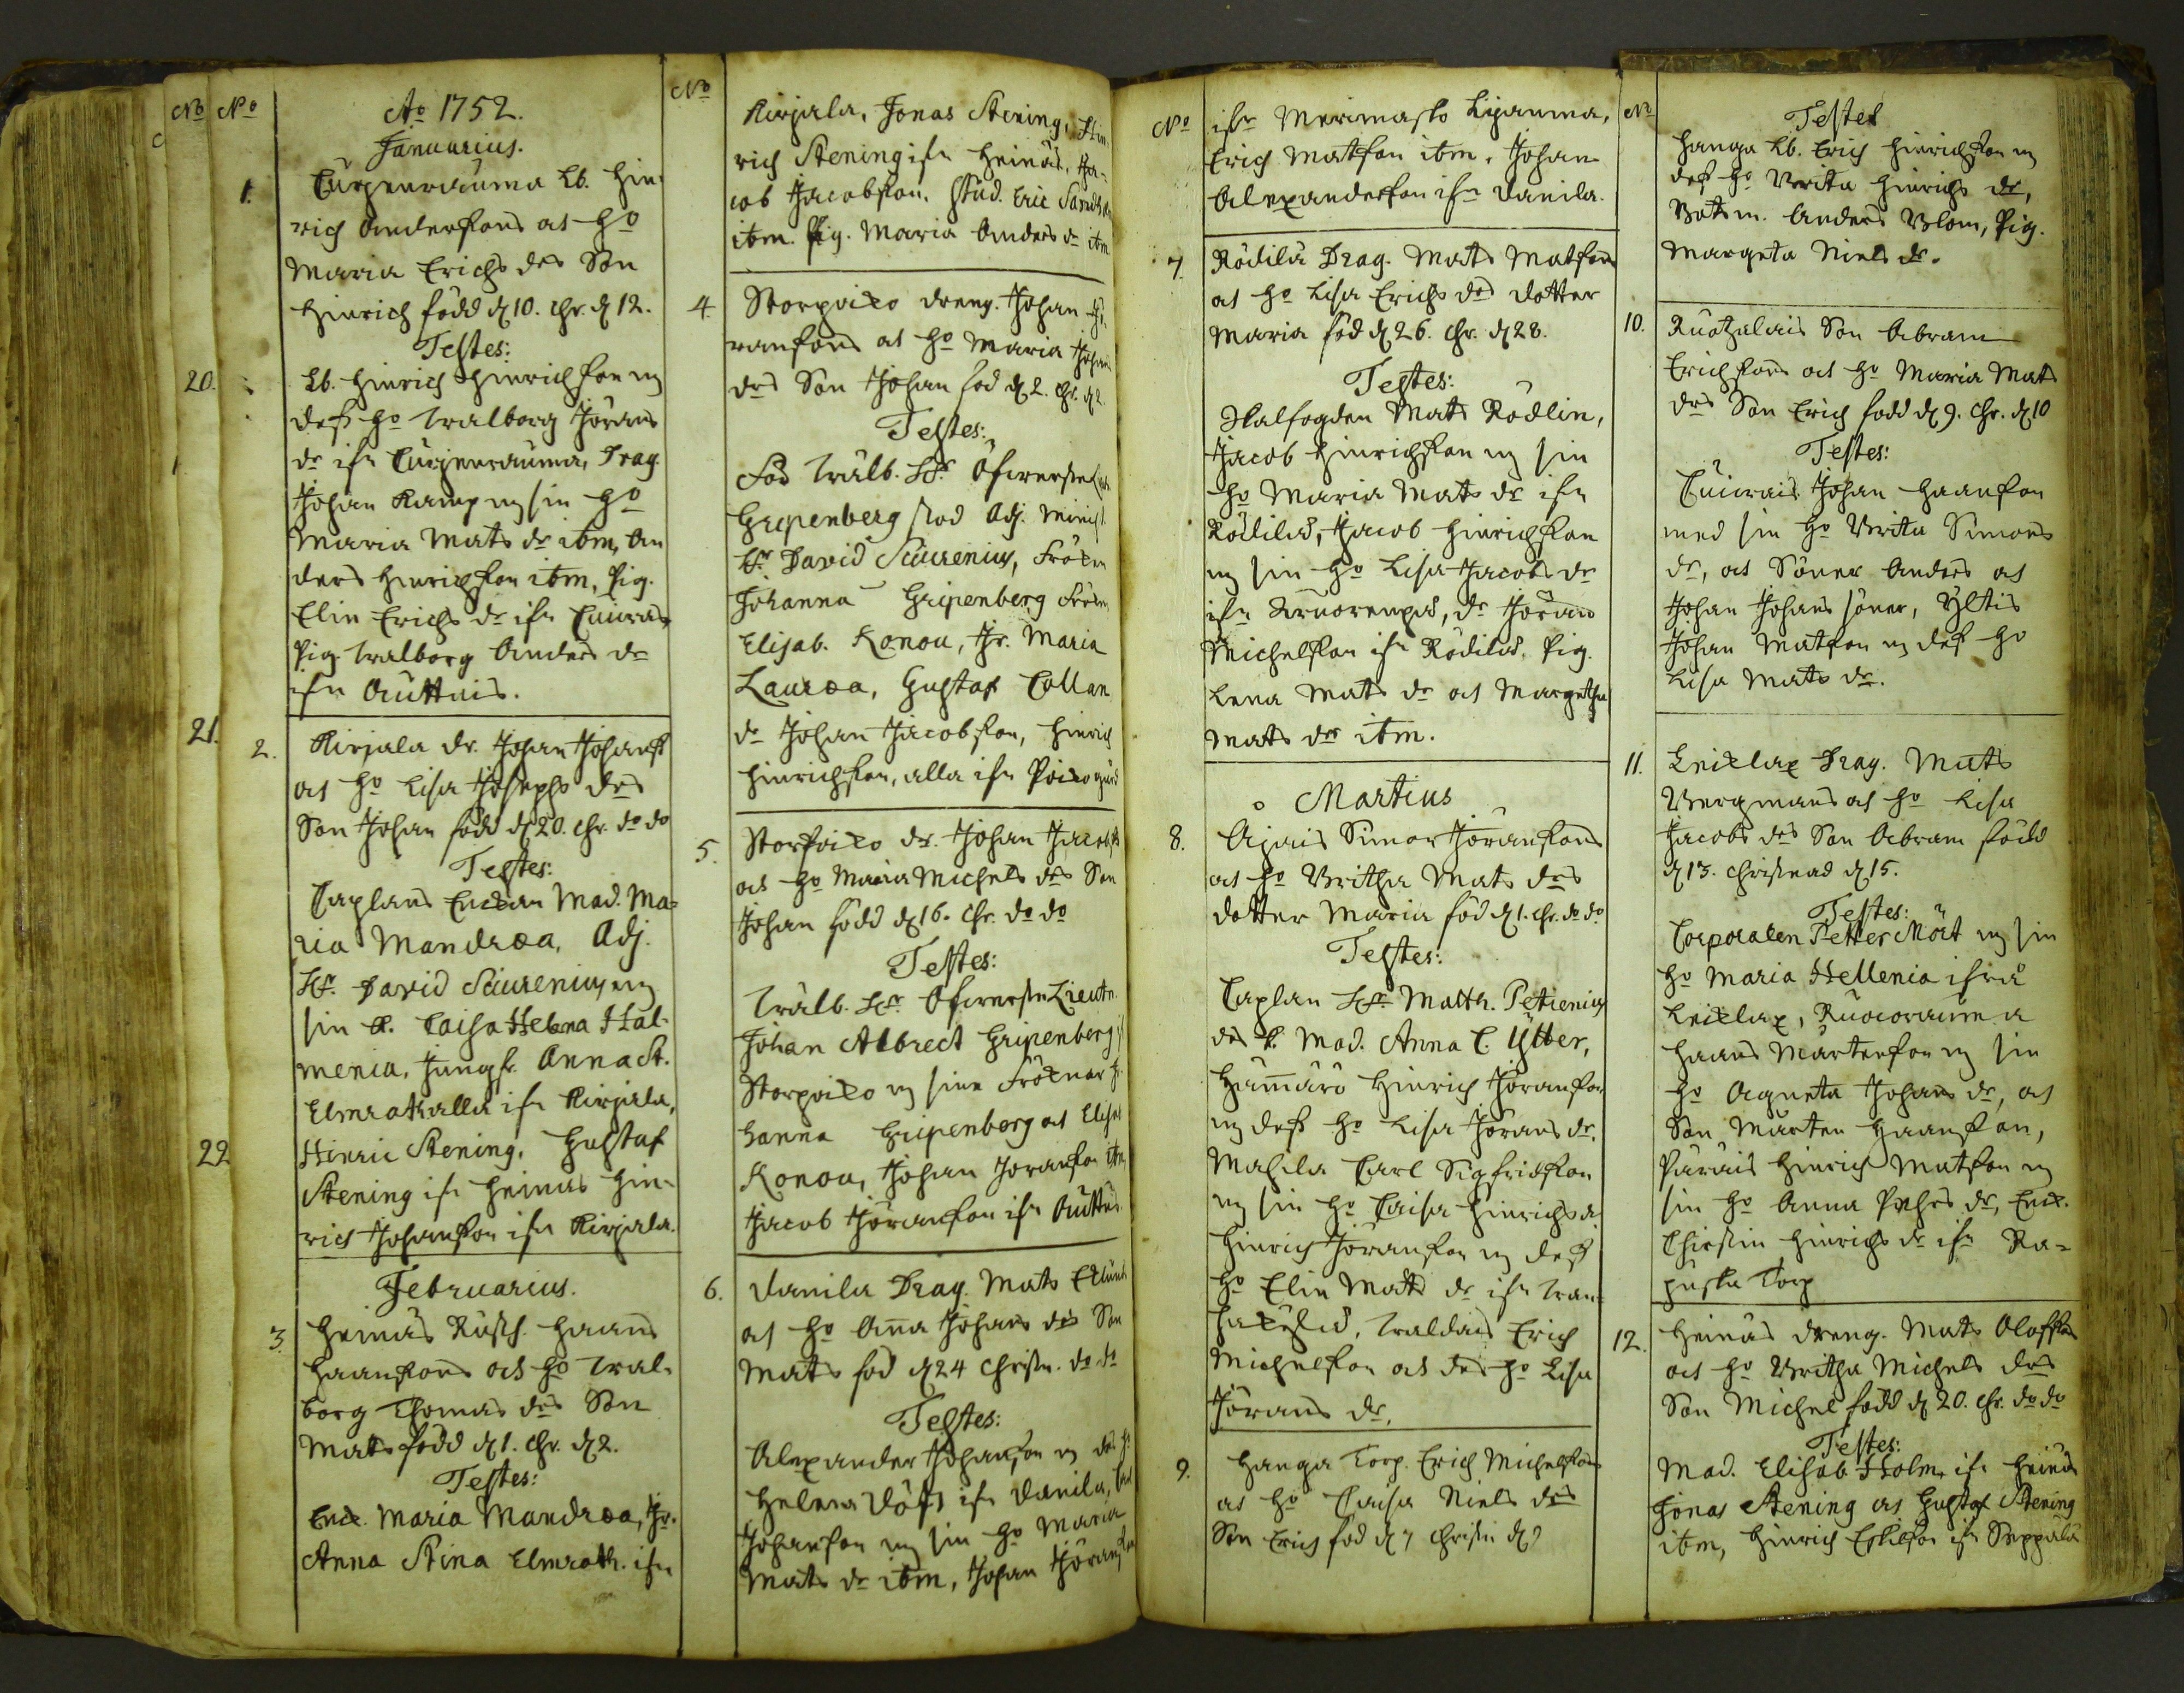 No No
Ao 1752.
Januarius.
1. Lb. Hin-
rich Andersons och Ho
Maria Erichs drs Son
Hinrich född d 10. Chr. d 12.
Testes:
20. Lb. Hinrich Hinrichson m
dess Ho Walborg Jörans
dr ifr Drag.
Johan Kamp m sin Ho
Maria Mats dr ibm, An
ders Hinrichson ibm, Pig.
Elin Erichs dr ifr
Pig. Walborg Anders dr
ifr Auttais.
21. 2. Kirjala dr. Johan Johans
och Ho Lisa Josephs drs
Son Johan född d 20. Chr. do do
Testes:
Caplans Enckan Mad. Ma-
ria Mandræa, Adj.
Hr. David Saurenius m
sin K. Caisa Helena Häl-
menia, Jungfr. Anna St.
ifr Kirjala,
22 Hinric Stening, Gustaf
Stening ifr Heinäs Hin-
rich Johanson ifr Kirjala.
Februarius.
3. Heinäs Rusth. Haans
Haansons och Ho Wal-
borg Thomas drs Son
Mats född d 1. Chr. d 2.
Testes:
Enck. Maria Mandræa, Jgr.
Anna Stina Elmroth. ifr
No
Kirjala, Jonas Stening, Hin
rich Stening ifr Heinäs, Ja-
cob Jacobson, Stud. Eric
ibm. Pig. Maria Anders dr ibm
4. Storpoiko dreng. Johan Jö-
ransons och Ho Maria Johans
drs Son Johan född d 2. Chr. d 2.
Testes:
Wälb. Hr. Öfwerste
Gripenberg Adj. Minist.
Hr. David Saurenius, Fröken
Johanna Gripenberg Fröken
Elisab. Konou, Jfr. Maria
Lauræa, Gustaf Collan
dr Johan Jacobson, Hinrich
Hinrichson, alla ifr Poiko gård
5. Storpoiko dr. Johan Jacobs
och Ho Maria Michels drs Son
Johan född d 16. Chr. do do
Testes:
Wälb. Hr. Öfwerste Lieutn.
Johan Albrect Gripenberg
Storpoiko m sine Fröknar Jo
hanna Gripenberg och Elisab
Konou, Johan Joranson ibm
Jacob Jöranson ifr
6. Danila Drag. Mats
och Ho Anna Johans drs Son
Mats född d 24 Christn. do do
Testes:
Alexander Johanson m des Ho
Helena ifr Danila,
Johanson m sin Ho Maria
Mats dr ibm, Johan Jöranson
No
ifr Merimasko
Erich Matson ibm, Johan
Alexanderson ifr Danila.
7. Rödilä Drag. Mats Matsons
och Ho Lisa Erichs drs dotter
Maria född d 26. Chr. d 28.
Testes:
Mats Rödlin,
Jacob Hinrichson m sin
Ho Maria Mats dr ifr
Rödilä, Jacob Hinrichson
m sin Ho Lisa Jacobs dr
ifr dr Jöran
Michelson ifr Rödilä. Pig.
Lena Mats dr och Margetha
Mats dr ibm.
Martius
8. Ajais Simon Jöransons
och Ho Britha Mats drs
dotter Maria född d 1. Chr. do do
Testes:
Caplan Hr. Matth. Petrenius
des K. Mad. Anna C. Ytter,
Hinrich Joranson
m dess Ho Lisa Jörans dr.
Carl Sigfridson
m sin Ho Caisa Hinrichs dr
Hinrich Jöranson m dess
Ho Elin Mats dr ifr
Erich
Michelson och des Ho Lisa
Jörans dr.
9. Hanga Torp. Erich Michelsons
och Ho Caisa Niels drs
Son Erich född d 7 Christn d 7
No
Testes
Hanga Lb. Erich Hinrichson m
dess Ho Brita Hinrichs dr,
Botsm. Anders Blom, Pig.
Margeta Niels dr.
10. Son Abram
Erichsons och Ho Maria Mats
drs Son Erich född d 9. Chr. d 10
Testes:
Johan Haanson
med sin Ho Brita Simons
dr, och Söner Anders och
Johan Johans söner, Yltis
Johan Matson m dess Ho
Lisa Mats dr.
11. Leiklax Drag. Mats
Bergmans och Ho Lisa
Jacobs drs Son Abram född
d 13. Christnad d 15.
Testes:
Corporalen Petter Mört m sin
Ho Maria Hellenia ifrå
Leiklax,
Haans Martenson m sin
Ho Agneta Johans dr, och
Son Marten Haanson,
Hinrich Matson m
sin Ho Anna Pehrs dr, Enk.
Chirstin Hinrichs dr ifr
Torp
12. Heinäs dreng. Mats Olofsons
och Ho Britha Michels drs
Son Michel född d 20. Chr. do do
Testes:
Mad. Elisab. Holm, ifr Heinäs
Jonas Stening och Gustaf Stening
ibm, Hinrich Eskilson ifr Seppälä